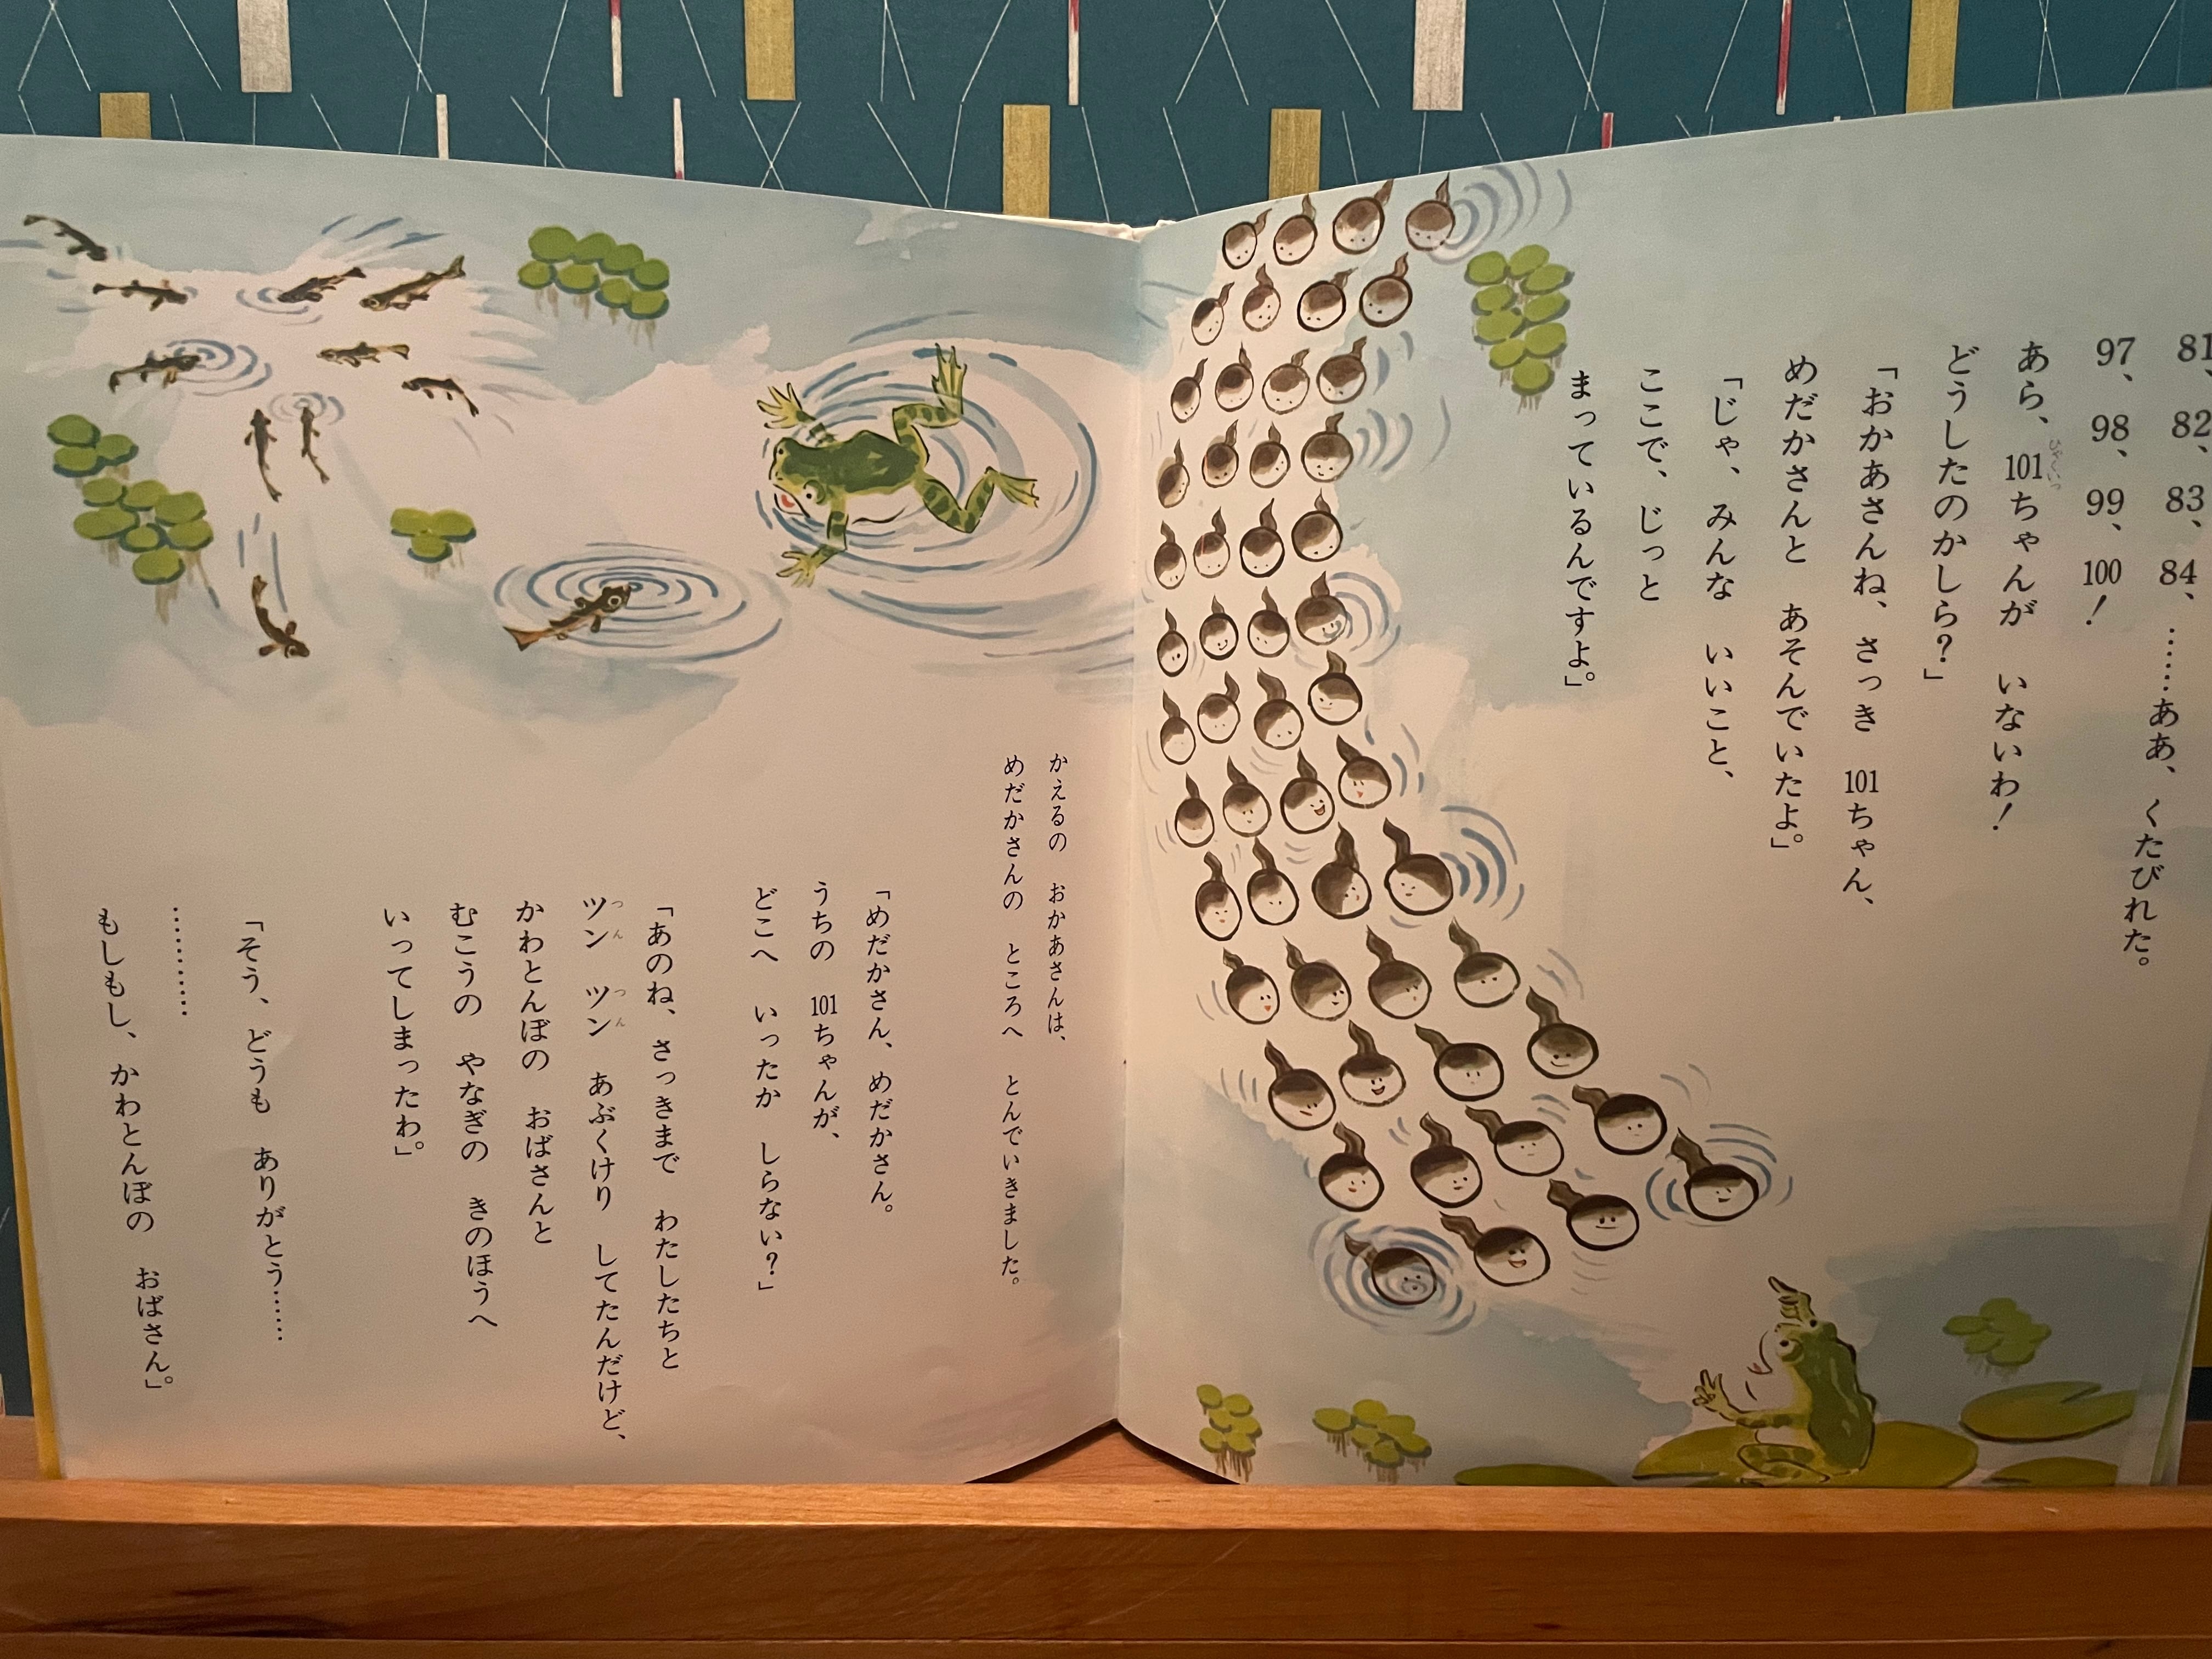 81、82、83、84、……ああ、くたびれた。
97、98、99、100！
あら、101ちゃんが　いないわ！
どうしたのかしら？」
「おかあさんね、さっき　101ちゃん、
めだかさんと　あそんでいたよ。」
「じゃ、みんな　いいこと、
ここで、じっと
まっているんですよ。」
かえるの　おかあさんは、
めだかさんの　ところへ　とんでいきました。
「めだかさん、めだかさん。
うちの　101ちゃんが、
どこへ　いったか　しらない？」
「あのね、さっきまで　わたしたちと
ツン　ツン　あぶくけり　してたんだけど、
かわとんぼの　おばさんと
むこうの　やなぎの　きのほうへ
いってしまったわ。」
「そう、どうも　ありがとう……
…………
もしもし、かわとんぼの　おばさん。」